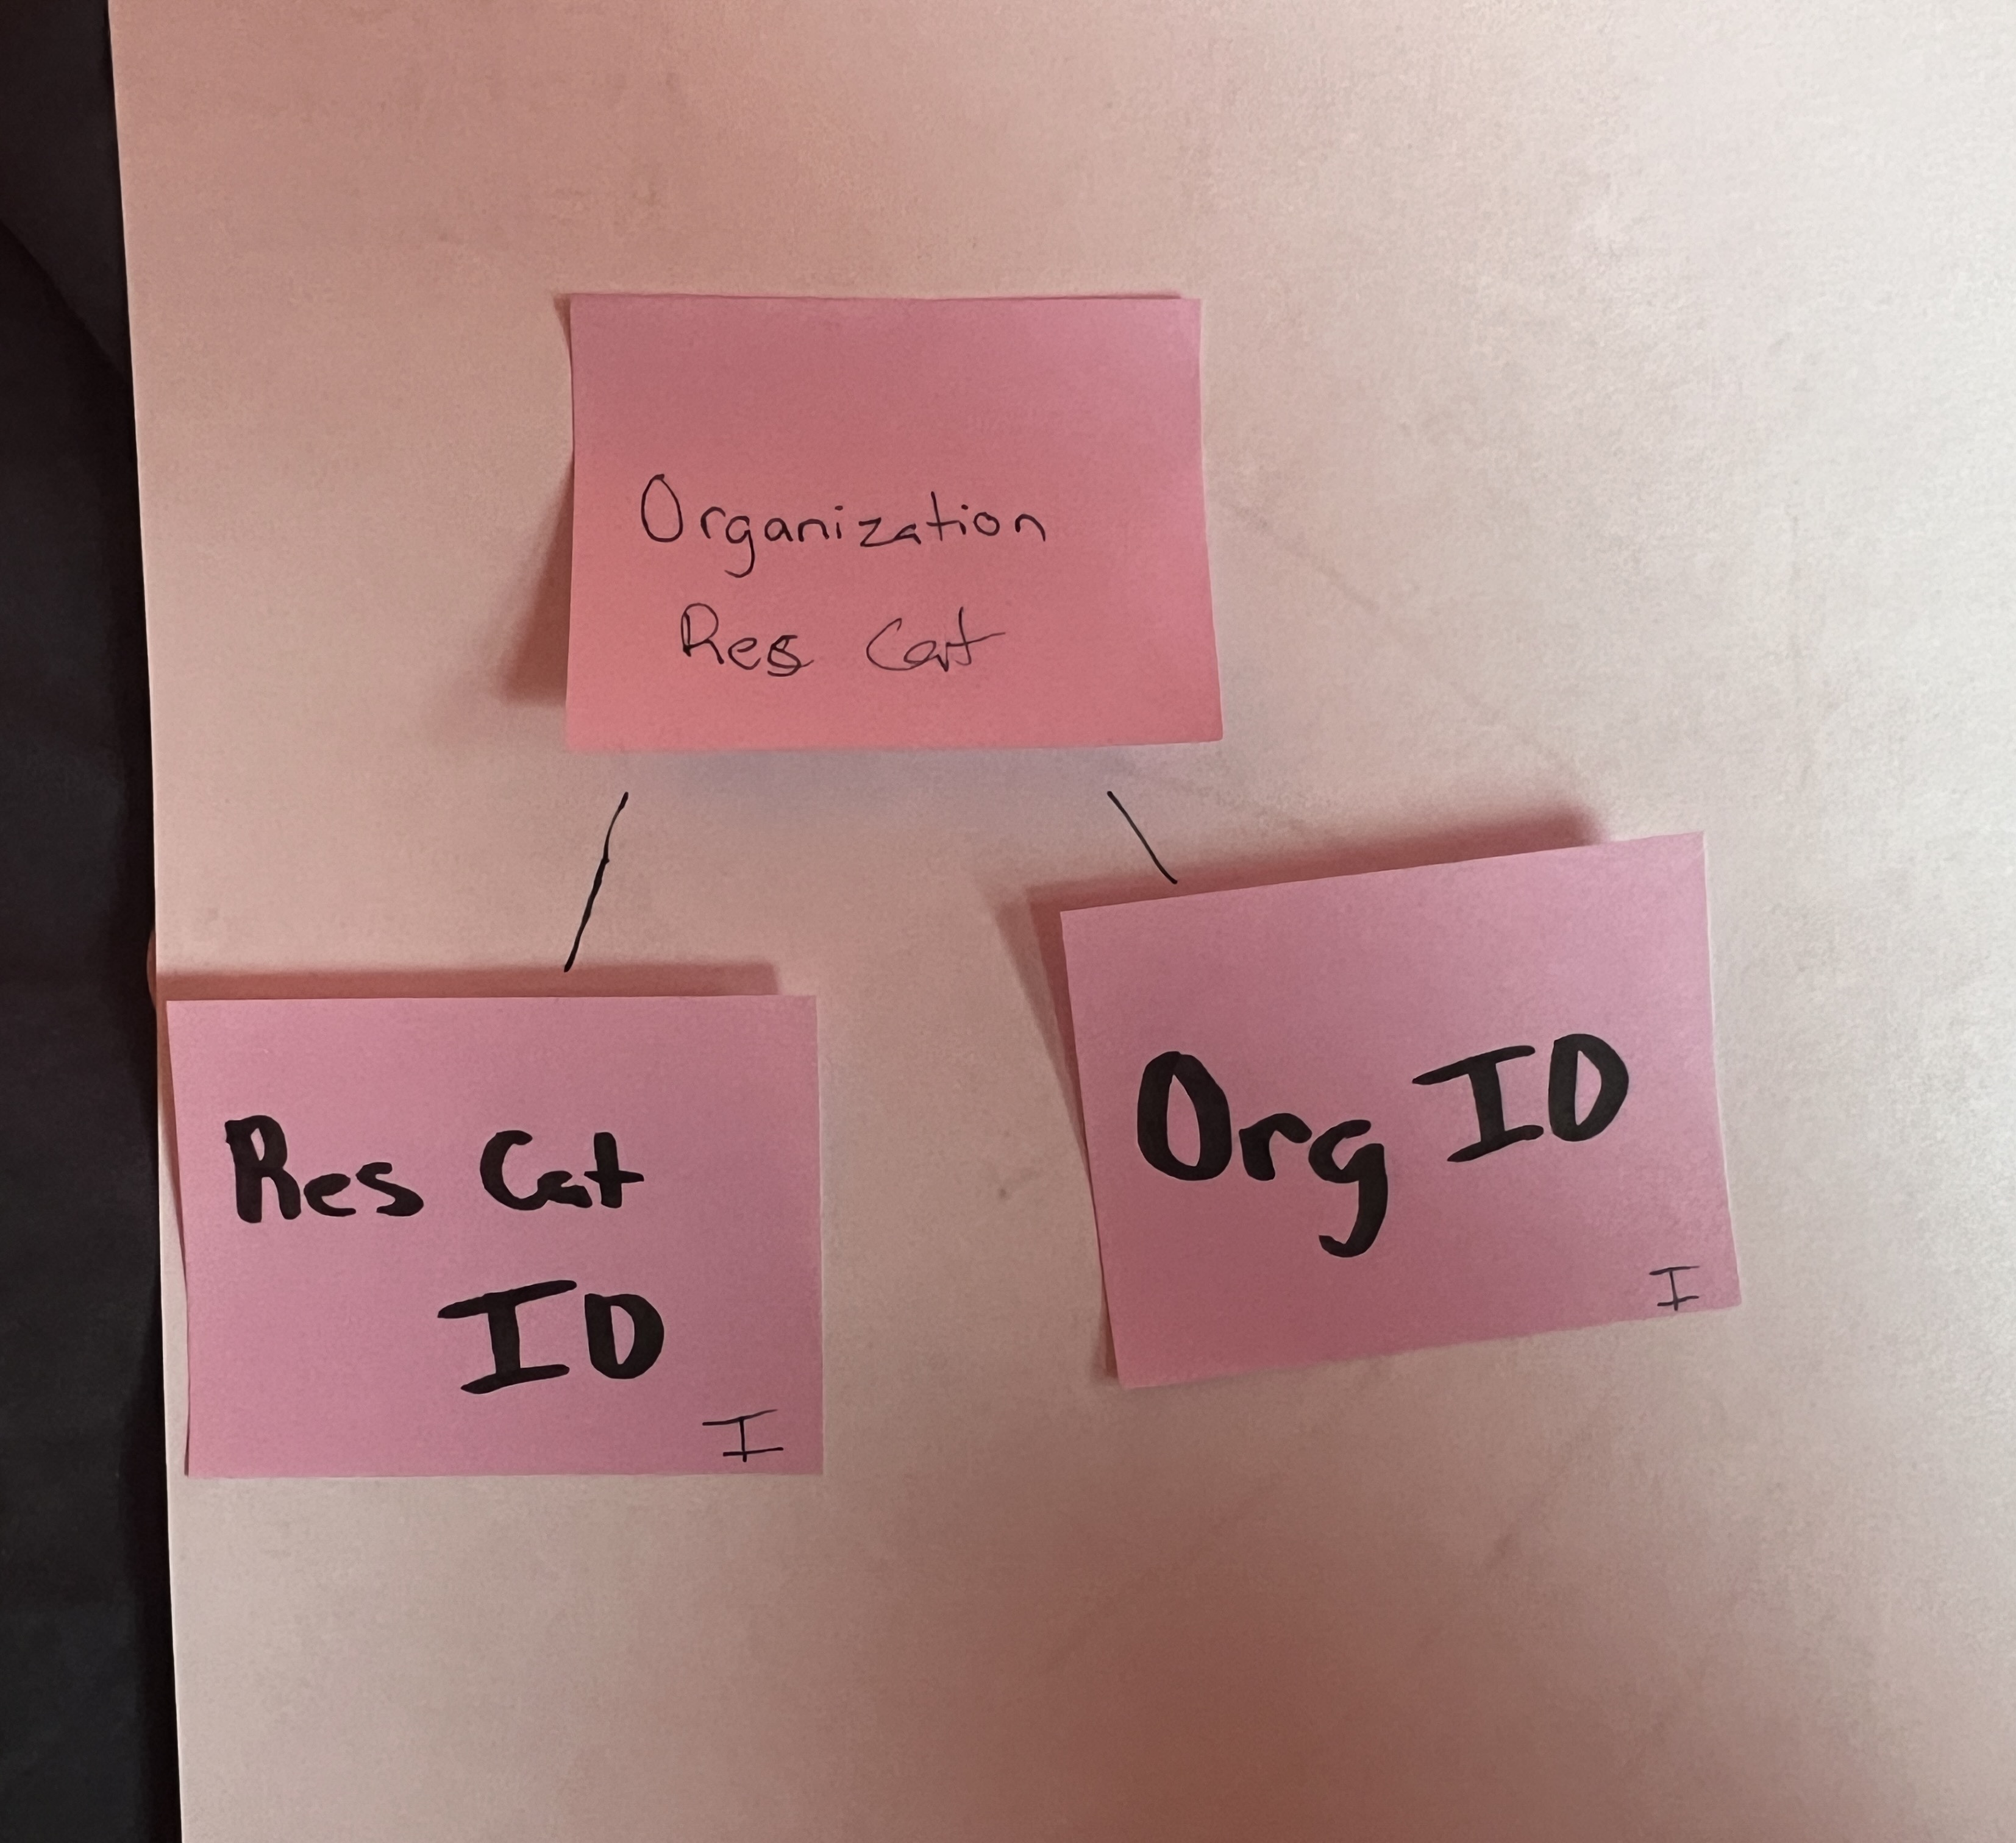 Organization
Res Cat
Res Cat
ID
I
Org ID
I